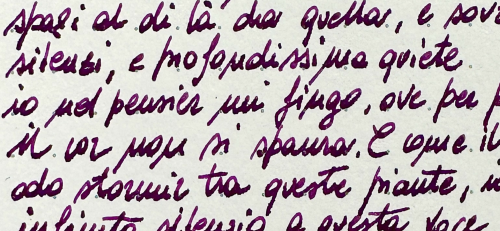 spazi al di là da quella, e sov
silenzi, e profondissima quiete
io nel pensier mi fingo, ove per p
il cor non si spaura. E come il
odo stormir tra queste piante,
infinito silenzio a questa voce